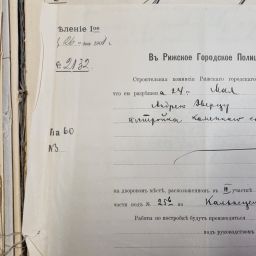 ѣленіе Iое
№ 2132
Въ Рижское Городское Полиц
Строительная комисія Рижскаго городского
что ею разрѣшен а 24 Мая
Андрею
постройка каменнаго
На 60
№3.
на дворовомъ мѣстѣ, расположенномъ въ II участкѣ
части подъ № 256 по
Работы по постройкѣ будутъ производиться
подъ руководствомъ